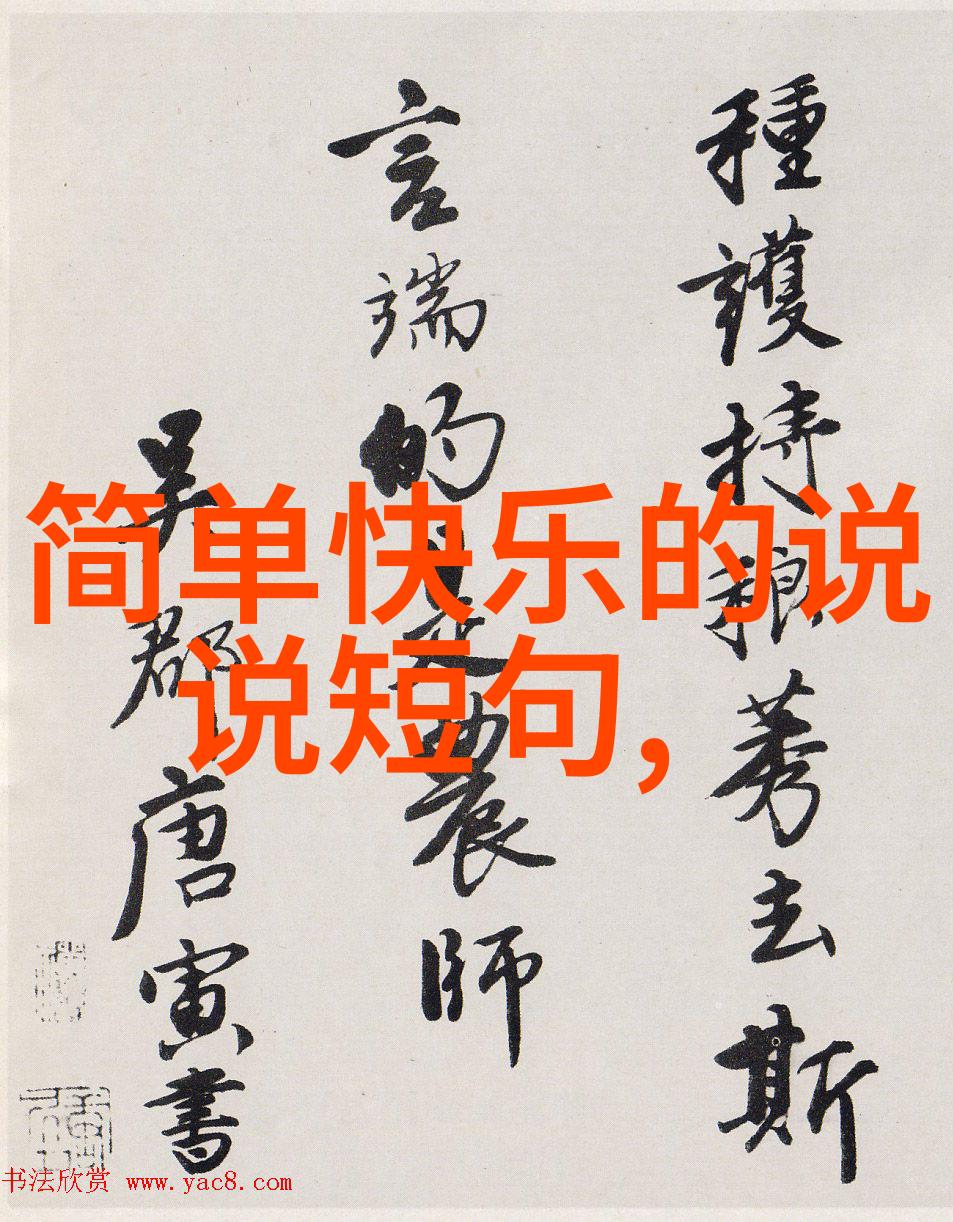 简单快乐的说
说短句,
種護持稂莠去斯
言端的是農師
吳郡唐寅書
书法欣赏 www.yac8.com